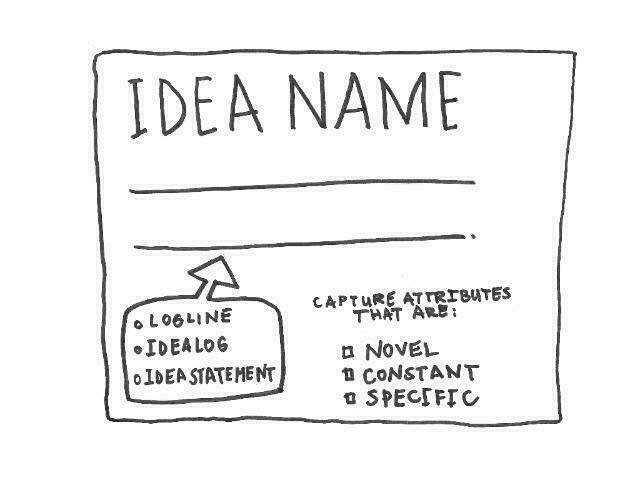 IDEA NAME
LOGLINE
IDEALOG
IDEA STATEMENT
CAPTURE ATTRIBUTES
THAT ARE:
NOVEL
CONSTANT
SPECIFIC